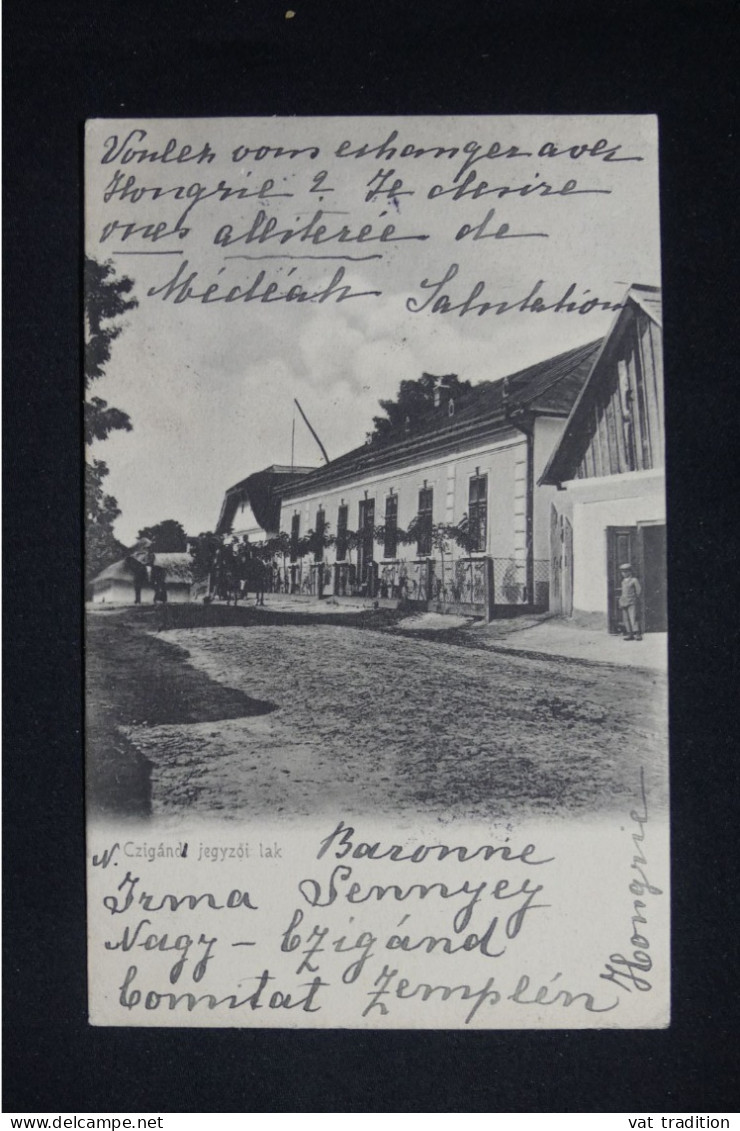 Voulez vous eshanger avec
Hongrie ? Je desire
vues alliterée de
Médéah Salutation
N. Czigándi jegyzői lak
Baronne
Irma Sennyey
Nagy – Czigánd
Comitat Zemplén
Hongrie
vat tradition